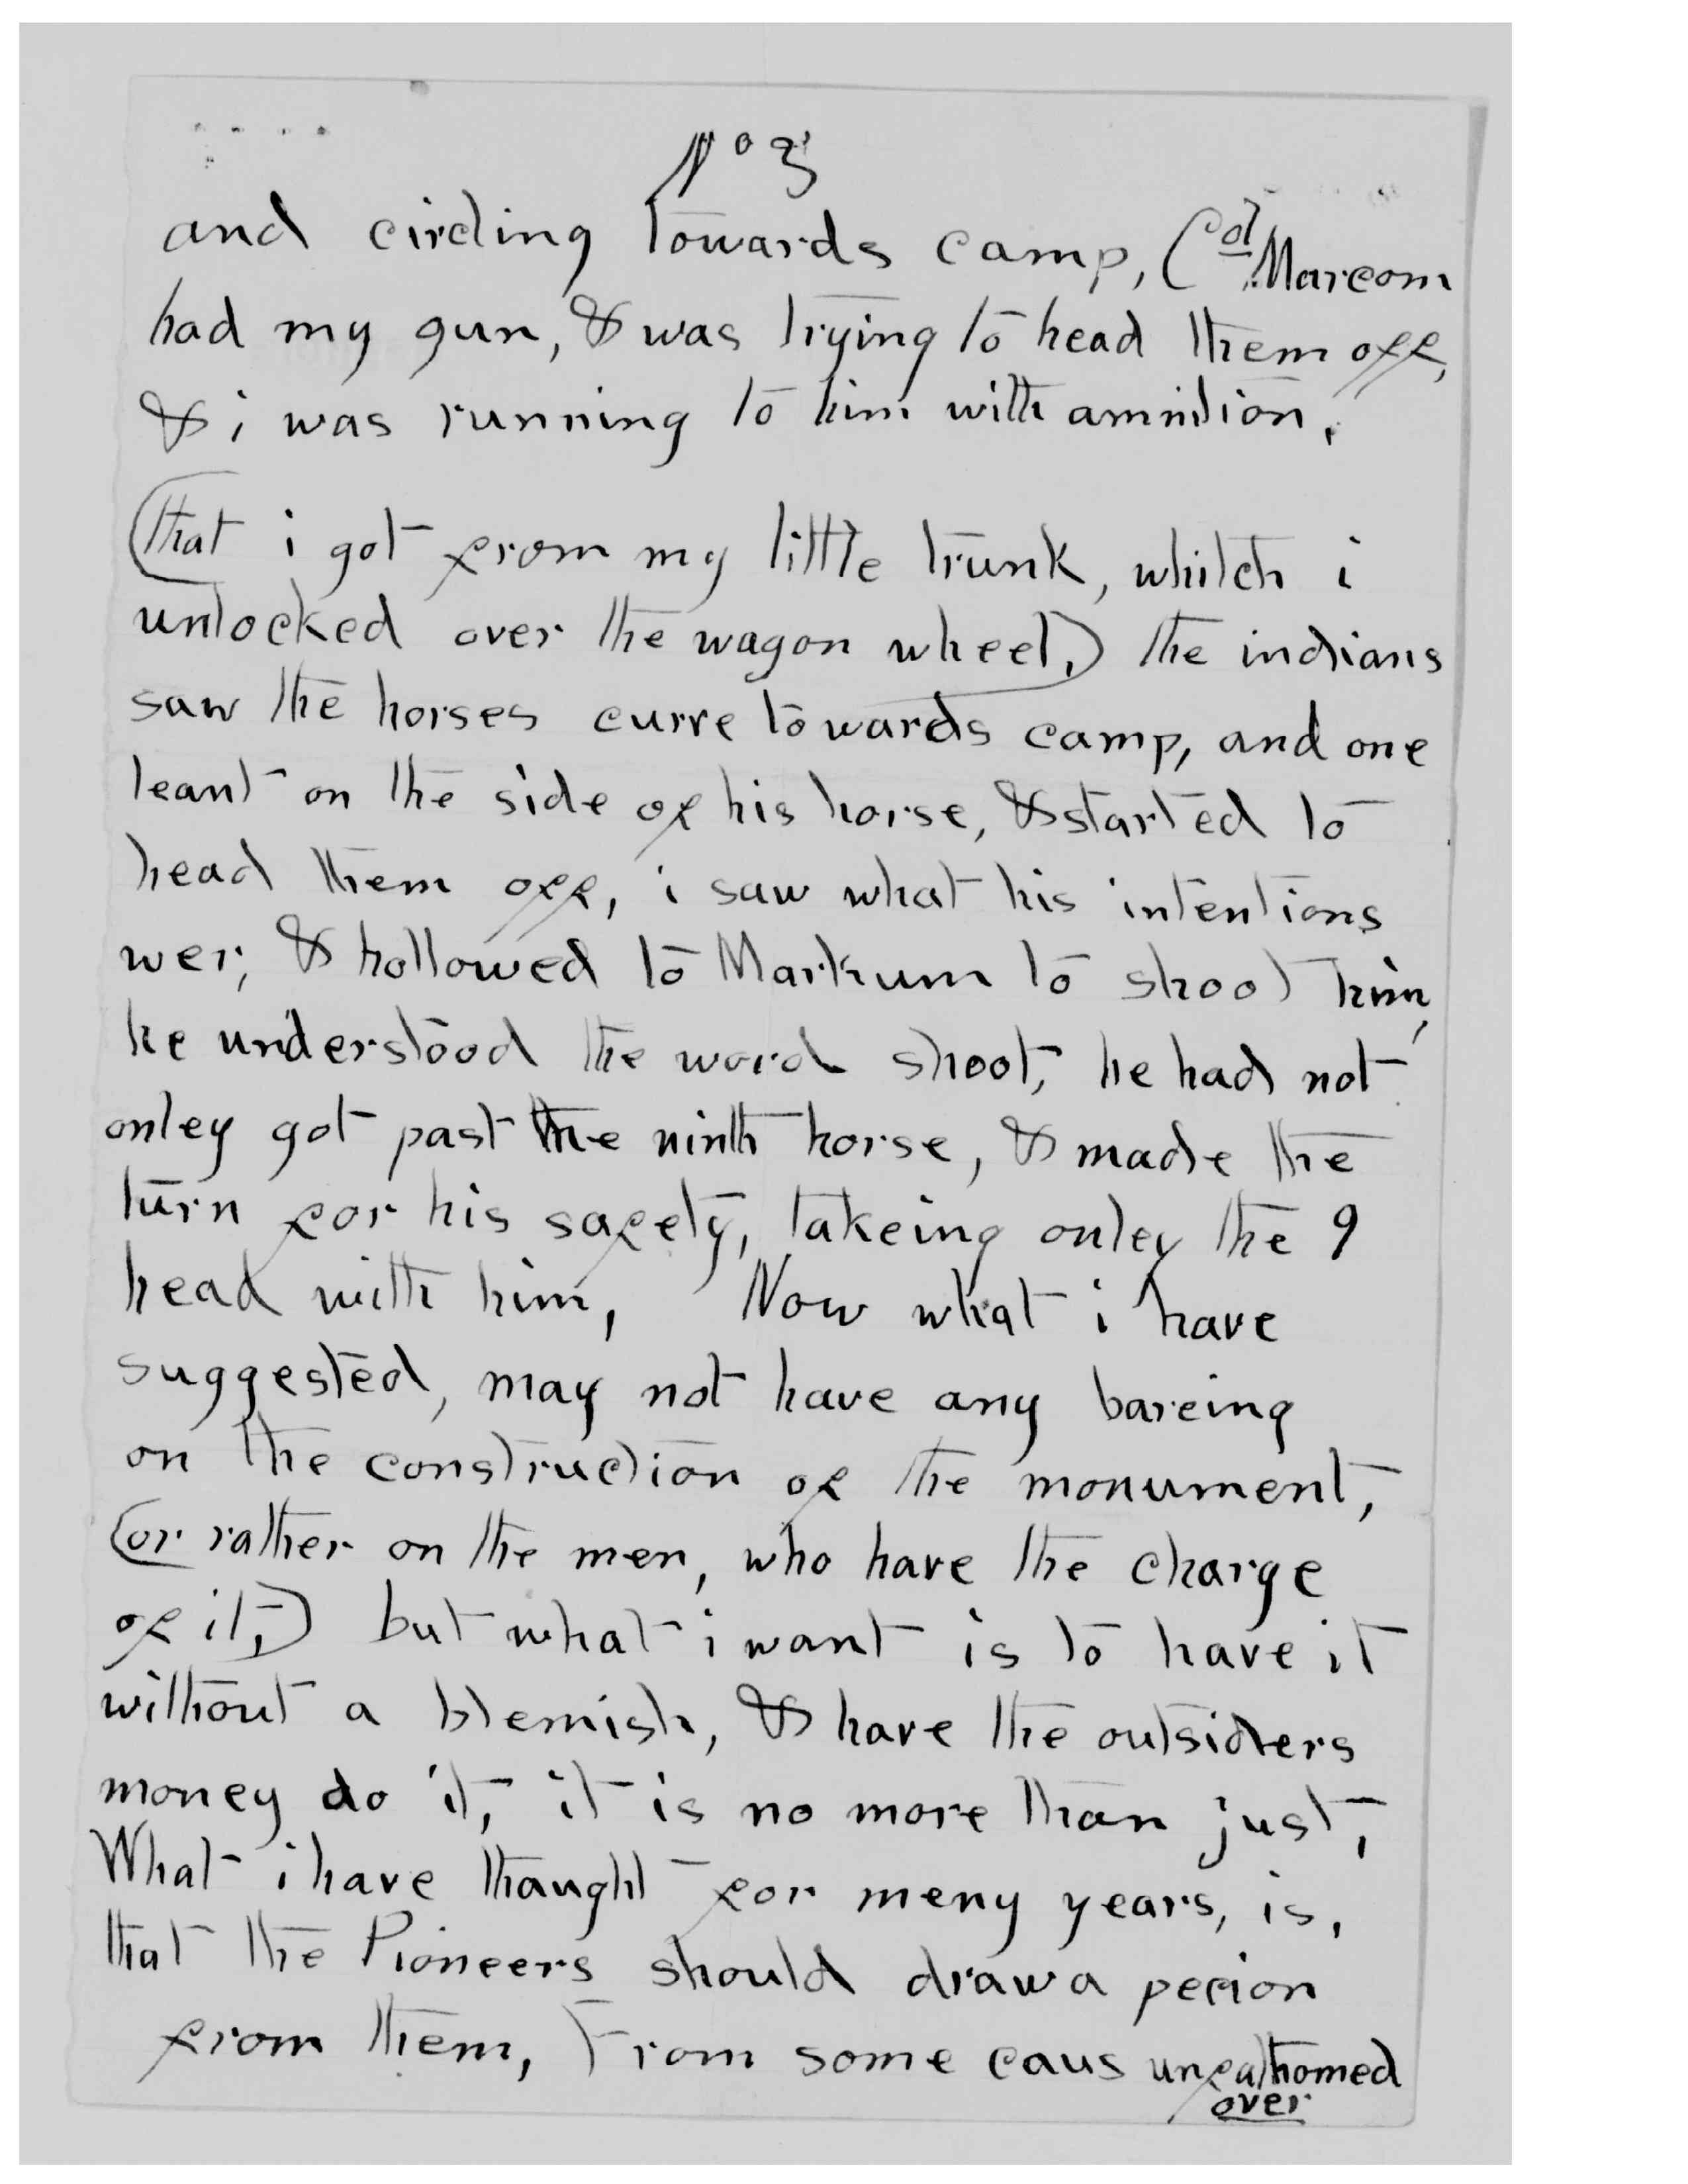 No 3
and circling towards camp, (Col Marcom
had my gun, & was trying to head them off,
& i was running to him with amnition.
(that i got from my little trunk, whitch i
unlocked over the wagon wheel,) the indians
saw the horses curve towards camp, and one
leant on the side of his horse, & started to
head them off, i saw what his intentions
wer, & hollowed to Markum to shoot him,
he understood the word shoot, he had not
onley got past the ninth horse, & made the
turn for his safety, takeing onley the 9
head with him, Now what i have
suggested, may not have any bareing
on the construction of the monument,
(or rather on the men, who have the charge
of it,) but what i want is to have it
without a blemish, & have the outsiders
money do it, it is no more than just,
What i have thaught for meny years, is,
that the Pioneers should draw a pecion
from them, From some caus unfathomed
over